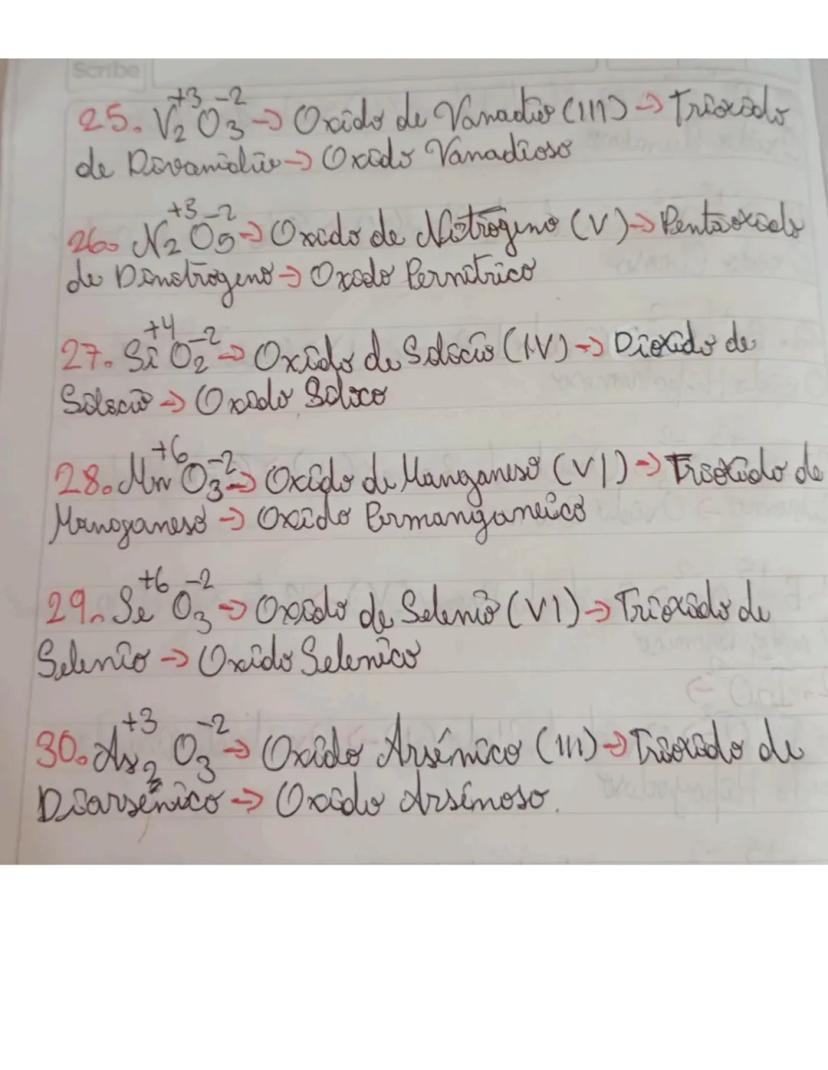 Scribe
25. V₂⁺³O₃⁻² → Oxido de Vanadio (III) → Trioxido
de Divanidio → Oxido Vanadioso
26. N₂⁺³O₅⁻² → Oxido de Nitrogeno (V) → Pentaoxido
de Dinitrogeno → Oxido Pernitrico
27. Si⁺⁴O₂⁻² → Oxido de Silicio (IV) → Dioxido de
Silicio → Oxido Silico
28. Mn⁺⁶O₃⁻² → Oxido de Manganeso (VI) → Trioxido de
Manganeso → Oxido Permanganeico
29. Se⁺⁶O₃⁻² → Oxido de Selenio (VI) → Trioxido de
Selenio → Oxido Selenico
30. As₂⁺³O₃⁻² → Oxido Arsénico (III) → Trioxido de
Diarsénico → Oxido Arsinoso.